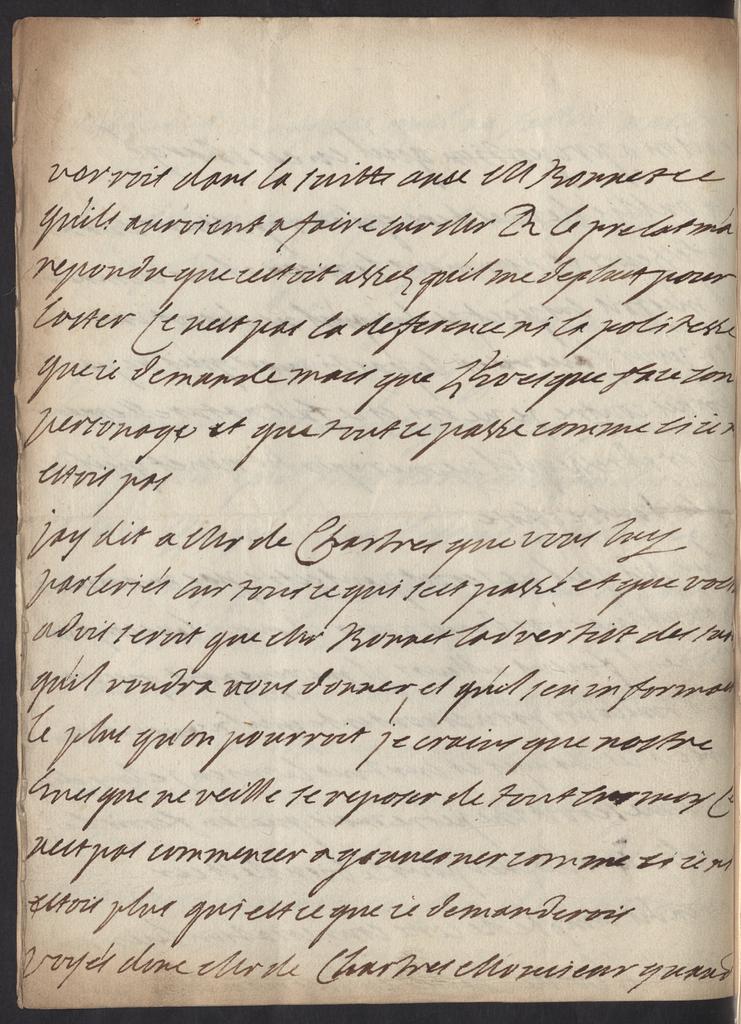 verroit dans la suitte avec Mr Bonnet ce
qu'ils auroient a faire sur Mr le prelat m'a
repondu que cestoit assez qu'il me deplust pour
loster Ce nest pas la deference ni la politesse
que ie demande mais que Levesque face son
personage et que tout ce passe comme si ie n
estois pas
jay dit a Mr de Chartres que vous luy
parleriés sur tous ce qui sest passé et que vostre
advis seroit que Mr Bonnet ladvertist des
quil voudra vous donner et quil sen informast
le plus qu'on pourroit je crains que nostre
Evesque ne veille se reposer de tout sur moy Ce
nest pas commencer a gouverner comme si ie n
estois plus qui est ce que ie demanderois
voyés donc Mr de Chartres Monsieur quand